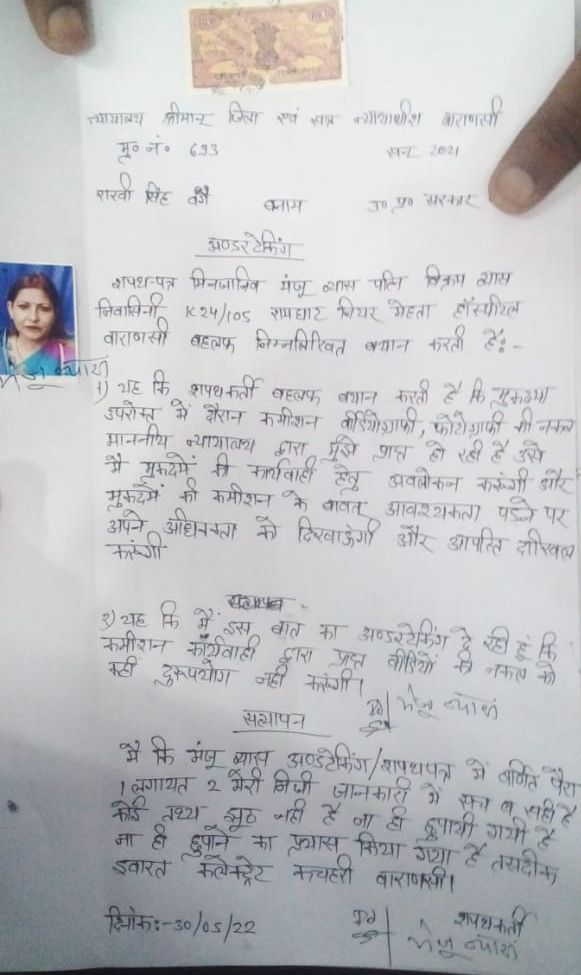 न्यायालय श्रीमान् जिला एवं सत्र न्यायाधीश वाराणसी
मु० नं० 693 सन 2021
राखी सिंह वगै बनाम उ० प्र० सरकार
अण्डरटेकिंग
शपथ-पत्र मिनजानिब मंजू व्यास पत्नि विक्रम व्यास
निवासिनी K24/105 रामघाट नियर मेहता हॉस्पीटल
वाराणसी बहलफ निम्नलिखित बयान करती है:-
मंजू व्यास
1) यह कि शपथकर्ती बहलफ बयान करती है कि मुकदमा
उपरोक्त में दौरान कमीशन वीडियोग्राफी, फोटोग्राफी की नकल
माननीय न्यायालय द्वारा मुझे प्राप्त हो रही है उसे
मैं मुकदमें की कार्यवाही हेतु अवलोकन करूंगी और
मुकदमें की कमीशन के बावत आवश्यकता पडने पर
अपने अधिवक्ता को दिखाऊंगी और आपत्ति दाखिल
करूंगी
2) यह कि मैं इस बात का अण्डरटेकिंग दे रही हूं कि
कमीशन कार्यवाही द्वारा प्राप्त वीडियों की नकल को
कही दुरूपयोग नही करूंगी।
मंजू व्यास
सत्यापन
मै कि मंजू व्यास अण्डटेकिंग/शपथपत्र में वर्णित पैरा
1 लगायत 2 मेरी निजी जानकारी में सच व सही है
कोई तथ्य झूठ नही है ना ही छुपायी गयी है
ना ही छुपाने का प्रयास किया गया है तसदीक
इबारत कलेक्ट्रेट कचहरी वाराणसी।
दिनांक:-30/05/22 शपथकर्ती
मंजू व्यास